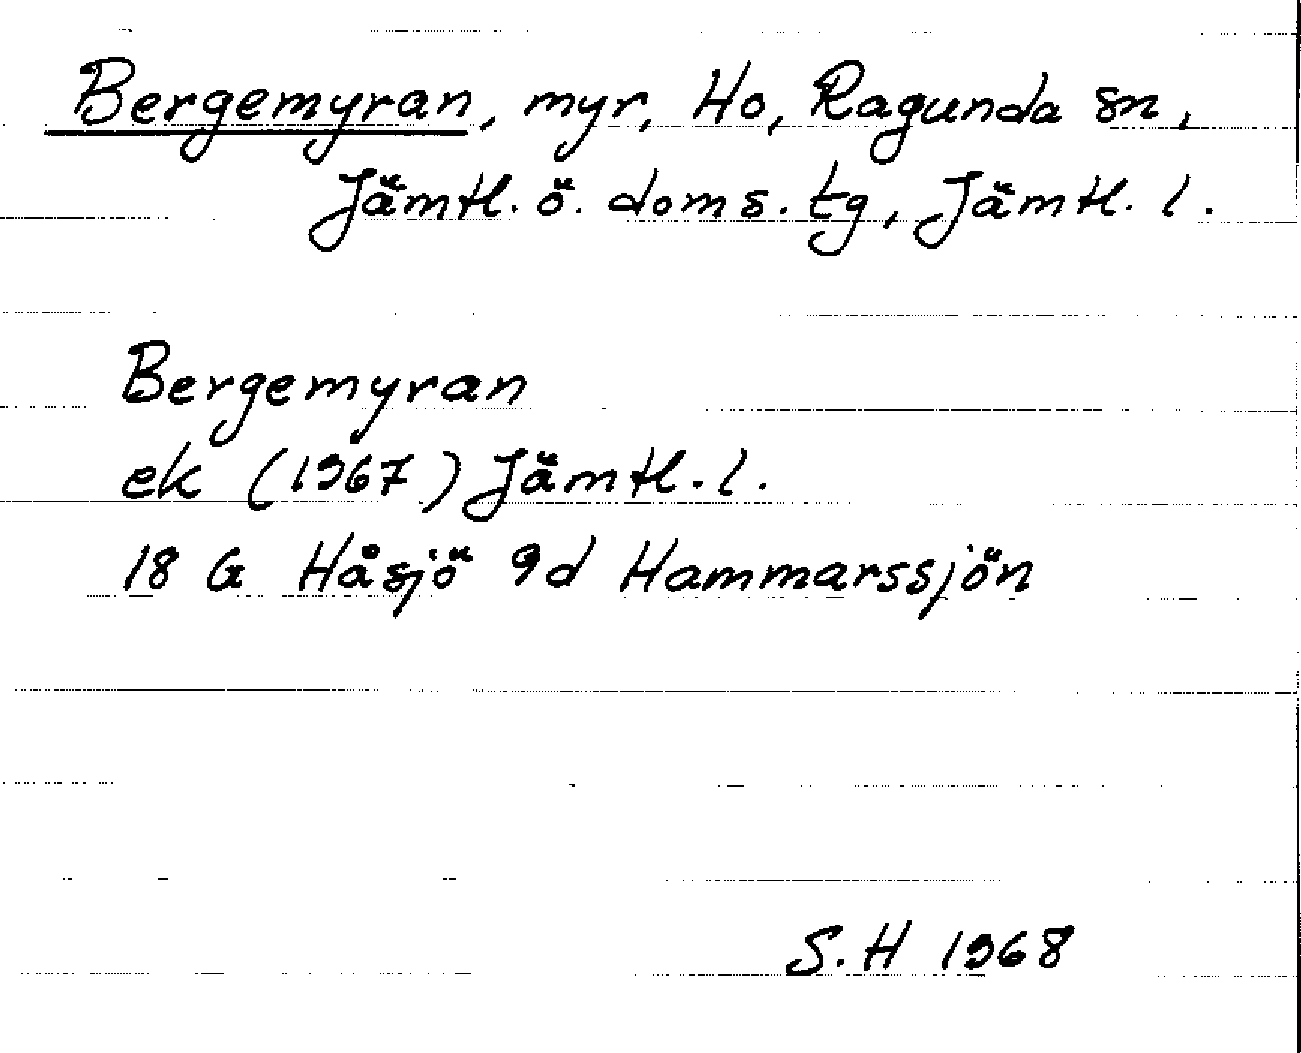 Bergemyran, myr, Ho, Ragunda sn,
Jämtl. ö. doms. tg, Jämtl. l.
Bergemyran
ek (1967) Jämtl. l.
18 G Håsjö 9d Hammarssjön
S.H 1968